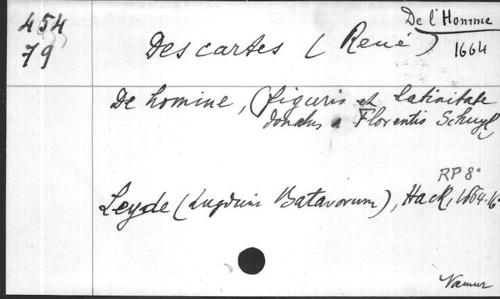 454
79
De l'Homme
1664
Descartes (René)
De homine, (figuris et latinitate
donatus a Florentio Schuyl
RP 8°
Leyde (Lugduni Batavorum), Hack, 1664.
Namur